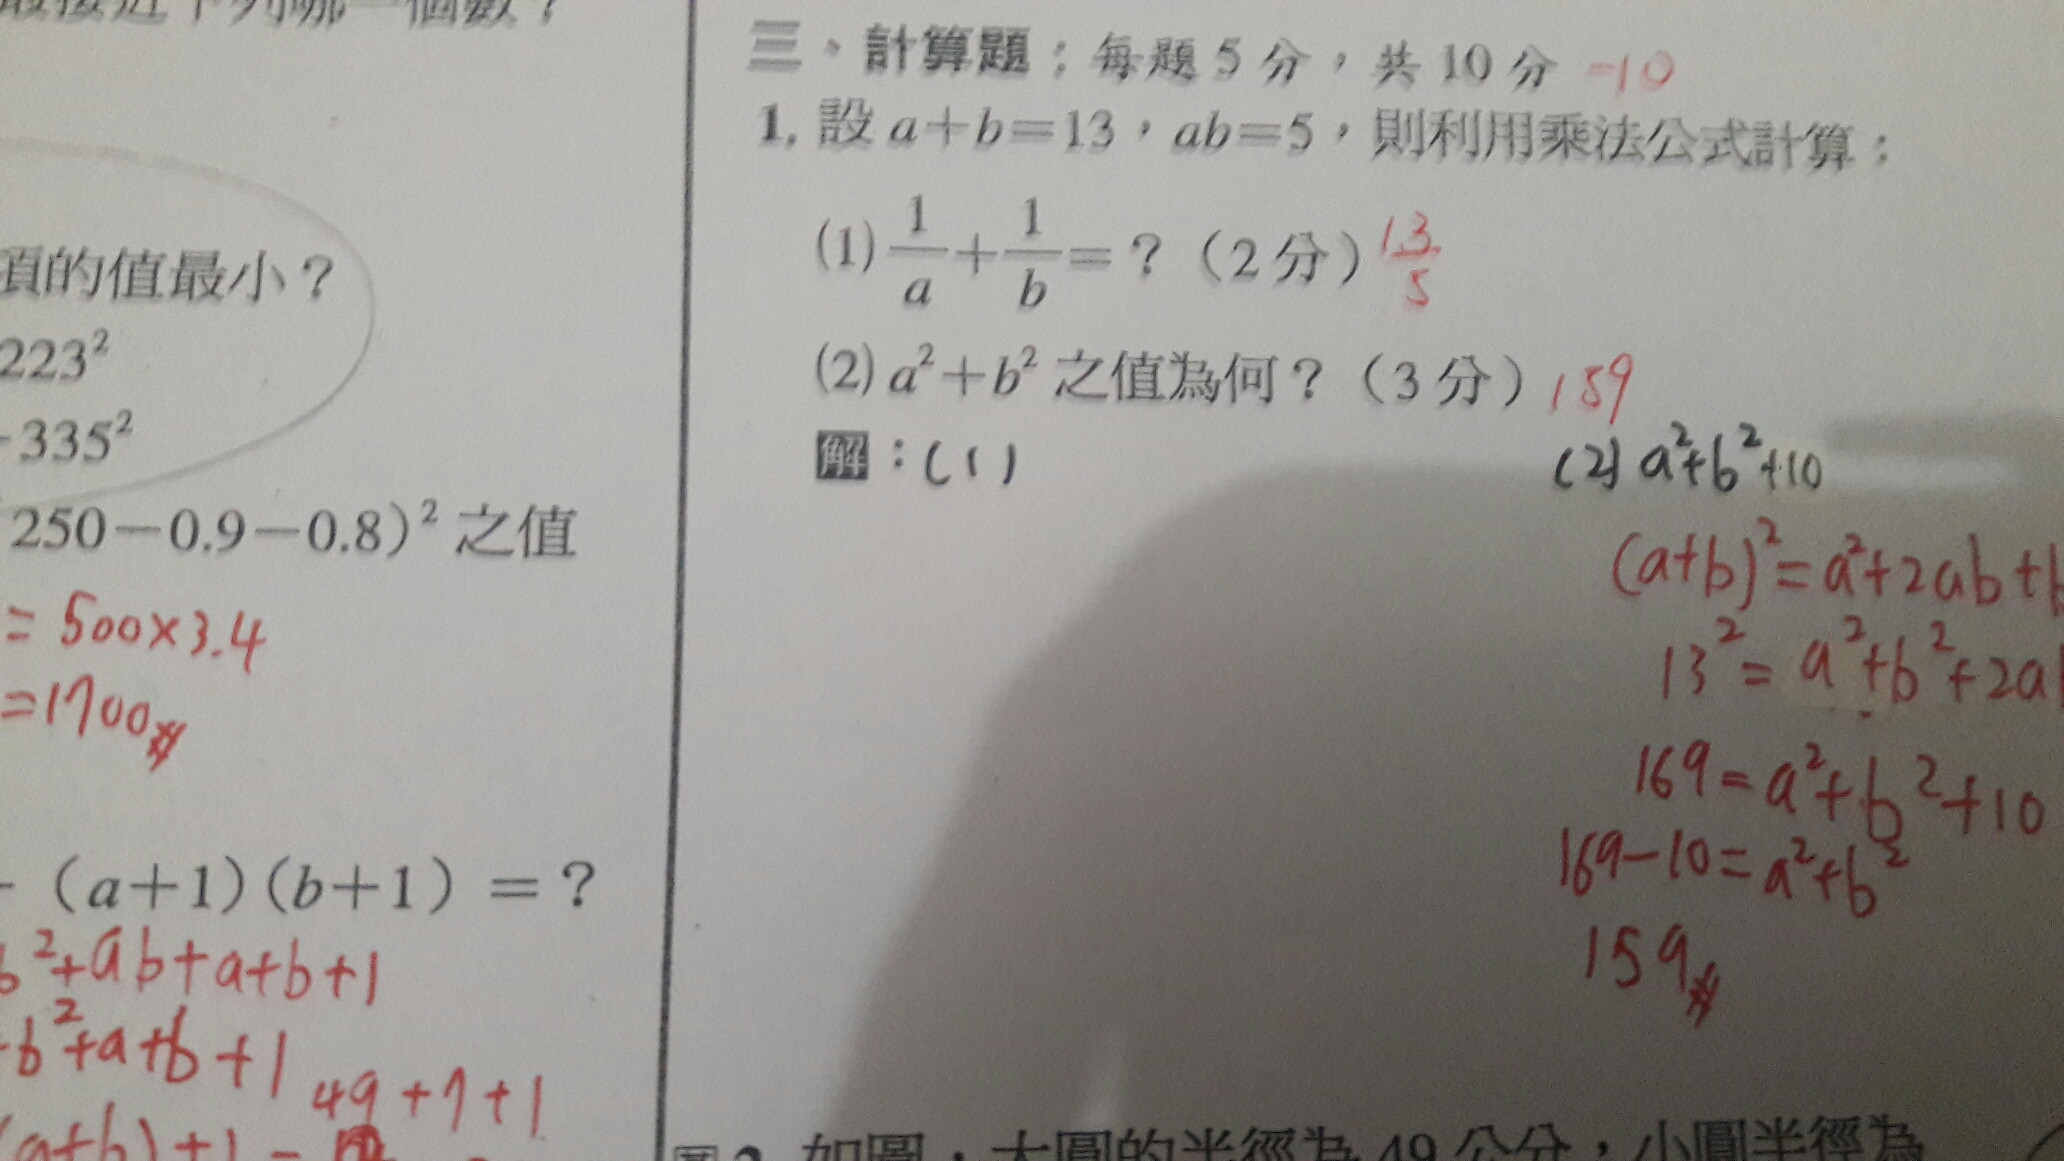 一個數？
項的值最小？
223²
335²
250－0.9－0.8)² 之值
= 500×3.4
=1700
(a+1)(b+1) =？
b²+ab+a+b+1
b²+a+b+1
49+7+1
(a+b)+1=
三、計算題：每題 5 分，共 10 分 -10
1. 設 a+b=13，ab=5，則利用乘法公式計算：
(1) 1/a + 1/b =？（2 分） 13/5
(2) a²+b² 之值為何？（3 分） 159
解：(1)
(2) a²+b²+10
(a+b)²=a²+2ab+b
13²= a²+b²+2ab
169=a²+b²+10
169-10=a²+b²
159
2. 如圖，大圓的半徑為 49 公分，小圓半徑為